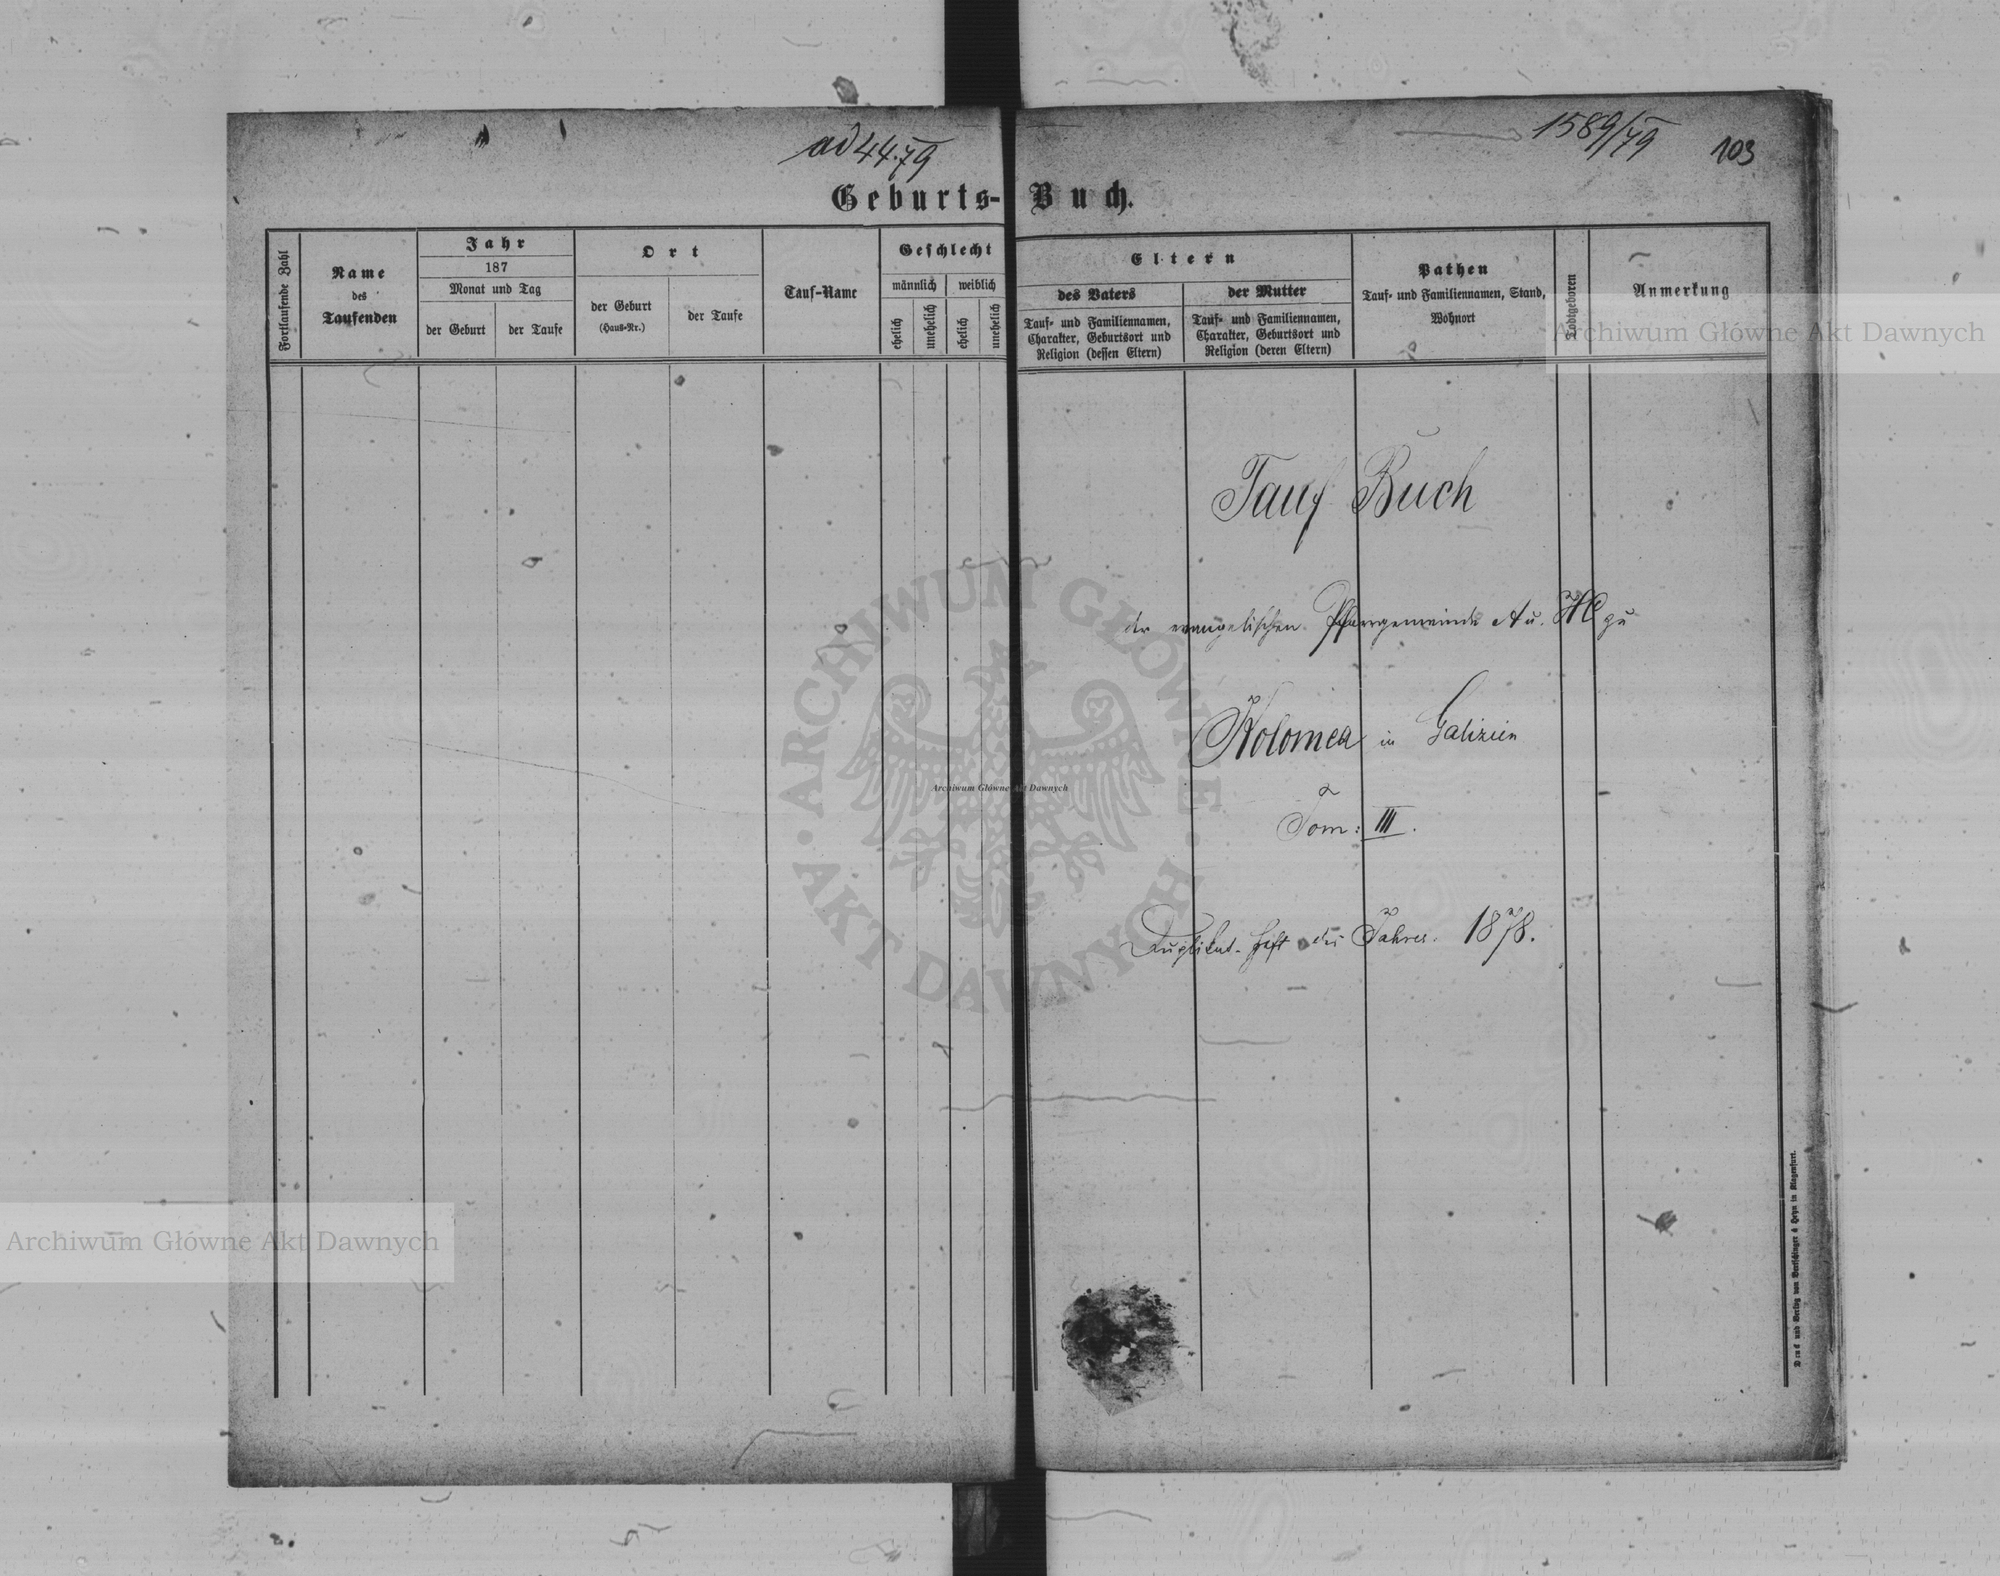 ad 44.79
1589/79
103
Geburts-Buch.
Fortlaufende Zahl
Name
des
Taufenden
Jahr
187
Monat und Tag
der Geburt
der Taufe
Ort
der Geburt
(Haus-Nr.)
der Taufe
Tauf-Name
Geschlecht
männlich
weiblich
ehelich
unehelich
ehelich
unehelich
Eltern
des Vaters
Tauf- und Familiennamen,
Charakter, Geburtsort und
Religion (dessen Eltern)
der Mutter
Tauf- und Familiennamen,
Charakter, Geburtsort und
Religion (deren Eltern)
Pathen
Tauf- und Familiennamen, Stand,
Wohnort
Todtgeboren
Anmerkung
Tauf Buch
der evangelischen Pfarrgemeinde A u. HC zu
Kolomea in Galizien
Tom: III.
Duplikat-Heft des Jahres 1878.
Druck und Verlag von Bertschinger & Heyn in Klagenfurt.
Archiwum Główne Akt Dawnych
ARCHIWUM GŁÓWNE · AKT DAWNYCH ·
Archiwum Główne Akt Dawnych
Archiwum Główne Akt Dawnych